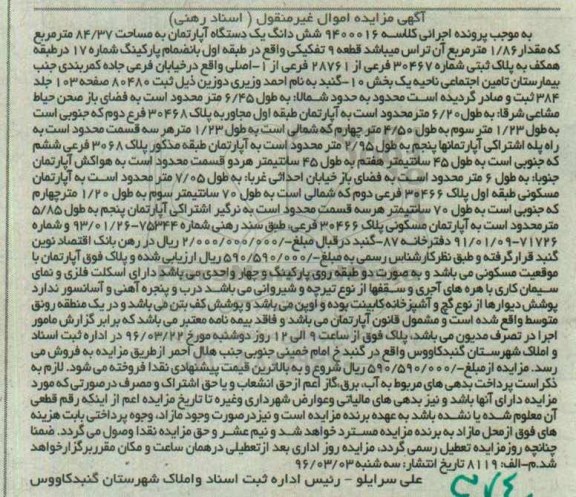 آگهی مزایده اموال غیرمنقول ( اسناد رهنی)
به موجب پرونده اجرائی کلاسه ۹۴۰۰۰۱۶ شش دانگ یک دستگاه آپارتمان به مساحت ۸۴/۳۷ مترمربع
که مقدار ۱/۸۶ مترمربع آن تراس میباشد قطعه ۹ تفکیکی واقع در طبقه اول بانضمام پارکینگ شماره ۱۷ درطبقه
همکف به پلاک ثبتی شماره ۳۰۴۶۷ فرعی از ۲۸۷۶۱ فرعی از ۱-اصلی واقع درخیابان فرعی جاده کمربندی جنب
بیمارستان تامین اجتماعی ناحیه یک بخش ۱۰-گنبد به نام احمد وزیری دوزین ذیل ثبت ۸۰۴۸۰ صفحه ۱۰۳ جلد
۳۸۴ ثبت و صادر گردیده است محدود به حدود شمالا: به طول ۶/۴۵ متر محدود است به فضای باز صحن حیاط
مشاعی شرقا: به طول ۶/۲۰ مترمحدود است به آپارتمان طبقه اول مجاور به پلاک ۳۰۴۶۸ فرع دوم که جنوبی است
به طول ۱/۲۳ متر سوم به طول ۴/۵۰ متر چهارم که شمالی است به طول ۱/۲۳ مترهر سه قسمت محدود است به
راه پله اشتراکی آپارتمانها پنجم به طول ۲/۹۵ متر محدود است به آپارتمان طبقه مذکور پلاک ۳۰۶۸ فرعی ششم
که جنوبی است به طول ۴۵ سانتیمتر هفتم به طول ۴۵ سانتیمتر هردو قسمت محدود است به هواکش آپارتمان
جنوبا: به طول ۶ متر محدود است به فضای باز خیابان احداثی غربا: به طول ۷/۰۵ متر محدود است به آپارتمان
مسکونی طبقه اول پلاک ۳۰۴۶۶ فرعی دوم که شمالی است به طول ۷۰ سانتیمتر سوم به طول ۱/۲۰ مترچهارم
که جنوبی است به طول ۷۰ سانتیمتر هرسه قسمت محدود است به نرگیر اشتراکی آپارتمان پنجم به طول ۵/۸۵
مترمحدود است به آپارتمان مسکونی پلاک ۳۰۴۶۶ فرعی. طبق سند رهنی شماره ۷۵۳۴۴-۹۳/۰۱/۲۶ و شماره
۷۱۷۲۶-۹۱/۰۱/۰۹ دفترخانه ۸۷-گنبد در قبال مبلغ-/۲/۰۰۰/۰۰۰/۰۰۰ ریال در رهن بانک اقتصاد نوین
گنبد قرارگرفته و طبق نظرکارشناس رسمی به مبلغ-/۵۹۰/۵۹۰/۰۰۰ ریال ارزیابی شده و پلاک فوق آپارتمان با
موقعیت مسکونی می باشد و به صورت دو طبقه روی پارکینگ و چهار واحدی می باشد دارای اسکلت فلزی و نمای
سیمان کاری با هره های آجری و سقفها از نوع تیرچه و شیروانی می باشد درب و پنجره آهنی و آسانسور ندارد
پوشش دیوارها از نوع گچ و آشپزخانه کابینت بوده و اوپن می باشد و پوشش کف بتن می باشد و در یک منطقه رونق
متوسط واقع شده است و مشمول قانون آپارتمان می باشد و فاقد بیمه نامه معتبر می باشد که برابر گزارش مامور
اجرا در تصرف مدیون می باشد، پلاک فوق از ساعت ۹ الی ۱۲ روز دوشنبه مورخ ۹۶/۰۳/۲۲ در اداره ثبت اسناد
و املاک شهرستان گنبدکاووس واقع در گنبد خ امام خمینی جنوبی جنب هلال احمر ازطریق مزایده به فروش می
رسد. مزایده ازمبلغ-/۵۹۰/۵۹۰/۰۰۰ ریال شروع و به بالاترین قیمت پیشنهادی نقدا فروخته می شود. لازم به
ذکراست پرداخت بدهی های مربوط به آب، برق،گاز اعم ازحق انشعاب و یا حق اشتراک و مصرف درصورتی که مورد
مزایده دارای آنها باشد و نیز بدهی های مالیاتی وعوارض شهرداری وغیره تا تاریخ مزایده اعم از اینکه رقم قطعی
آن معلوم شده یا نشده باشد به عهده برنده مزایده است و نیزدرصورت وجود مازاد، وجوه پرداختی بابت هزینه
های فوق ازمحل مازاد به برنده مزایده مسترد خواهد شد و نیم عشر و حق مزایده نقدا وصول می گردد. ضمنا
چنانچه روزمزایده تعطیل رسمی گردد، مزایده روز اداری بعد ازتعطیلی درهمان ساعت و مکان مقرربرگزارخواهد
شد.م-الف: ۸۱۱۹ تاریخ انتشار: سه شنبه ۹۶/۰۳/۰۳
علی سرایلو - رئیس اداره ثبت اسناد واملاک شهرستان گنبدکاووس